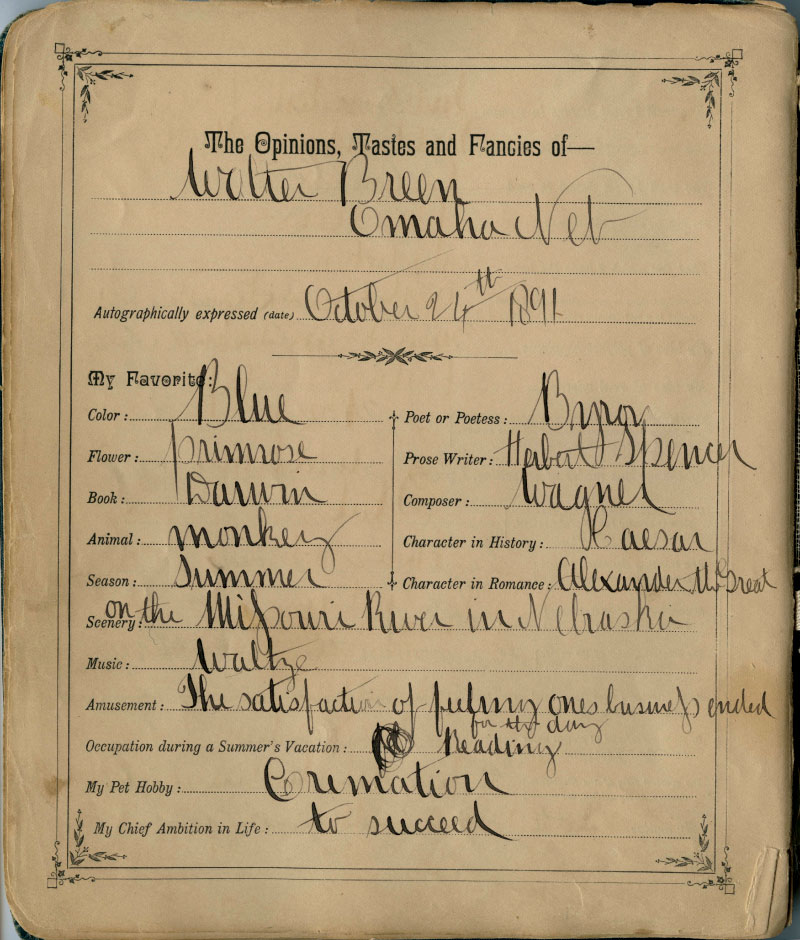 The Opinions, Tastes and Fancies of—
Walter Breen
Omaha Neb
Autographically expressed (date) October 24th 1891
My Favorite:
Color: Blue
Poet or Poetess: Byron
Flower: primrose
Prose Writer: Herbert Spencer
Book: Darwin
Composer: Wagner
Animal: monkey
Character in History: Caesar
Season: Summer
Character in Romance: Alexander the Great
Scenery: on the Missouri River in Nebraska
Music: Waltze
Amusement: The satisfaction of feeling ones business ended
for the day
Occupation during a Summer's Vacation: Reading
My Pet Hobby: Cremation
My Chief Ambition in Life: to succeed